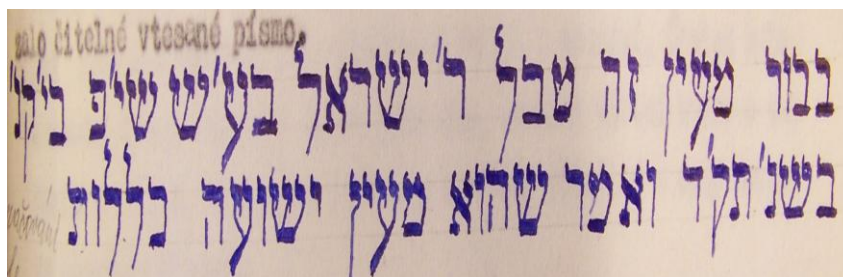 čitelné vtesané písmo.
בבור מעין זה טבל ר' ישראל בע'ש שי'פ בי'קני'
בשנ' תק'ד ואמר שהוא מעין ישועה כללות